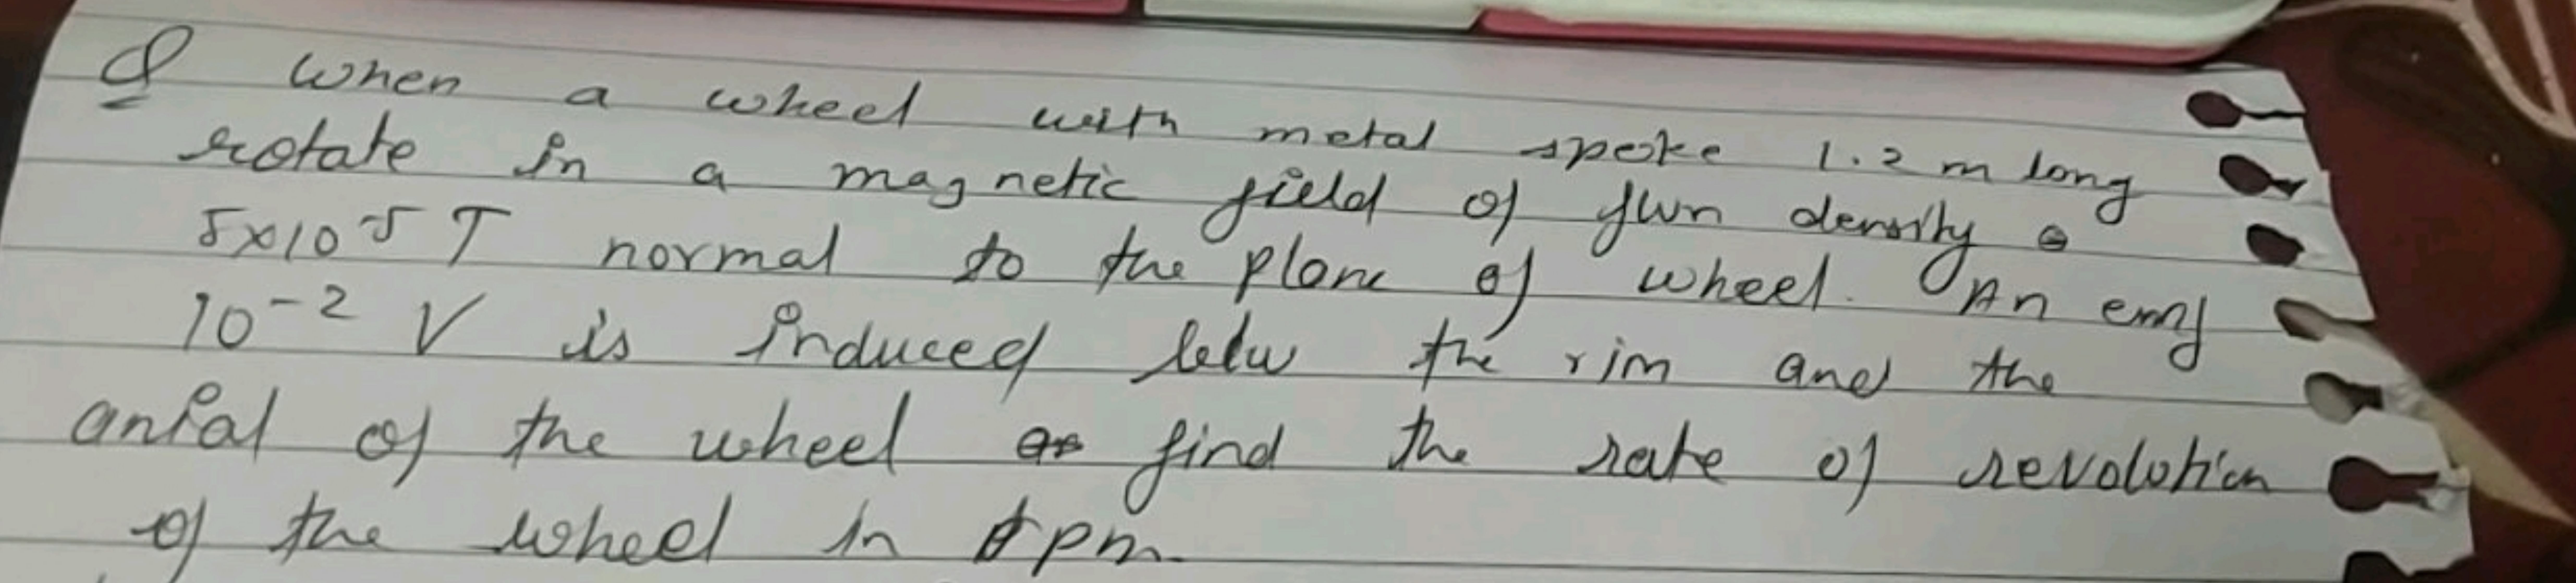 Q when a wheel with metal spoke 1.2 m long
rotate in a magnetic field of flux density
5x10 5 T normal to the plane of wheel. An emf
10-2 V is induced betw the rim and the
anial of the wheel find the rate of revolution
of the wheel in rpm